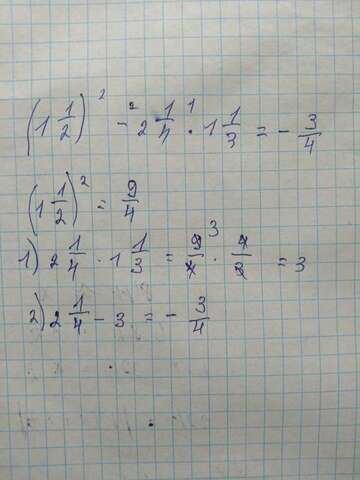 (1 1/2)² - 2 1/4 · 1 1/3 = - 3/4
(1 1/2)² = 9/4
1) 2 1/4 · 1 1/3 = 9/4 ³ · 4/3 = 3
2) 2 1/4 - 3 = - 3/4